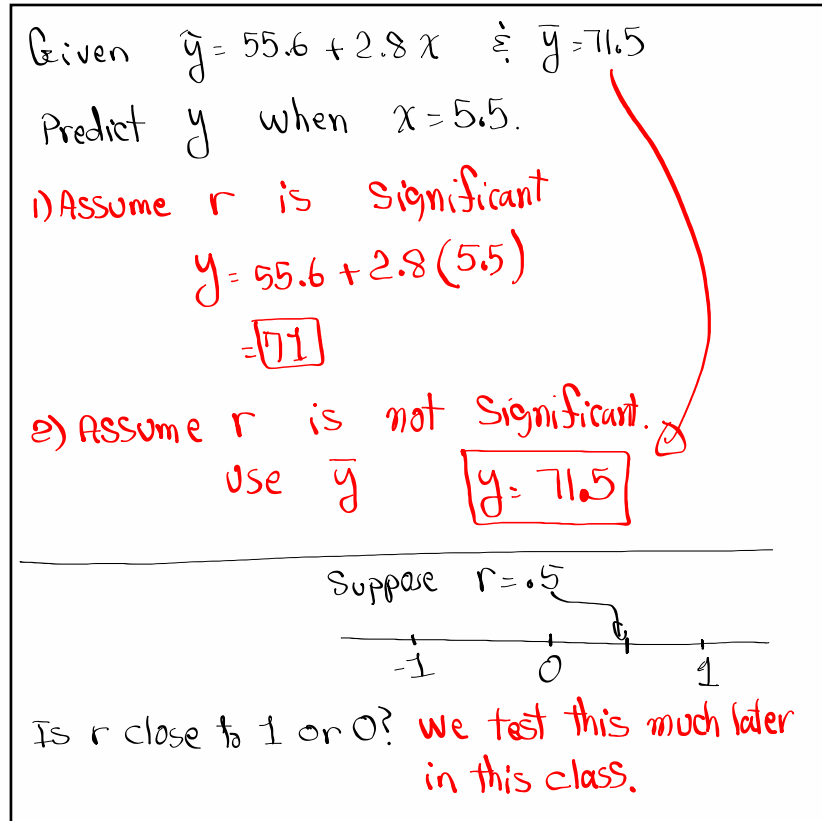 Given ŷ = 55.6 + 2.8 x & ȳ = 71.5
Predict y when x = 5.5.
1) Assume r is significant
y = 55.6 + 2.8 (5.5)
= 71
2) Assume r is not significant.
use ȳ y = 71.5
Suppose r = .5
-1 0 1
Is r close to 1 or 0? we test this much later
in this class.